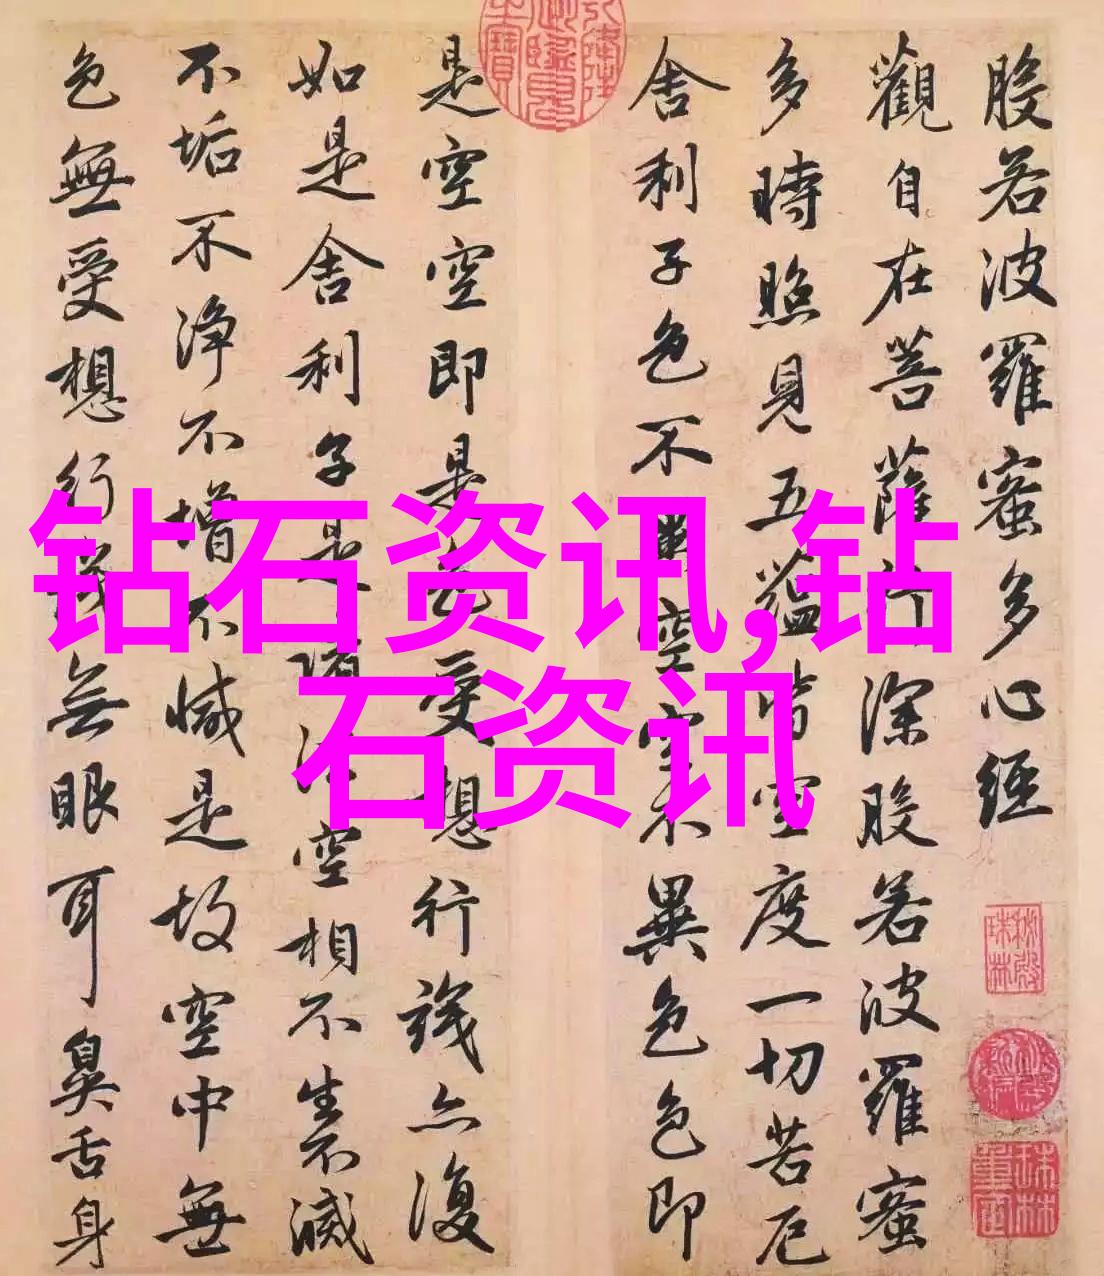 般若波羅蜜多心經
觀自在菩薩行深般若波羅蜜
多時照見五蘊皆空度一切苦厄
舍利子色不異空空不異色色即
是空空即是色受想行識亦復
如是舍利子是諸法空相不生不滅
不垢不净不增不減是故空中無
色無受想行識无眼耳鼻舌身
秘殿珠林
钻石资讯,钻
石资讯